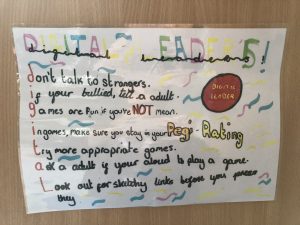 DIGITAL LEADERS!
don't talk to strangers.
if your bullied, tell a adult.
games are fun if you're NOT mean.
in games, make sure you stay in your Pegi-Rating
try more appropriate games.
ask a adult if your aloud to play a game.
Look out for sketchy links before you
they.
DIGITAL
LEADER